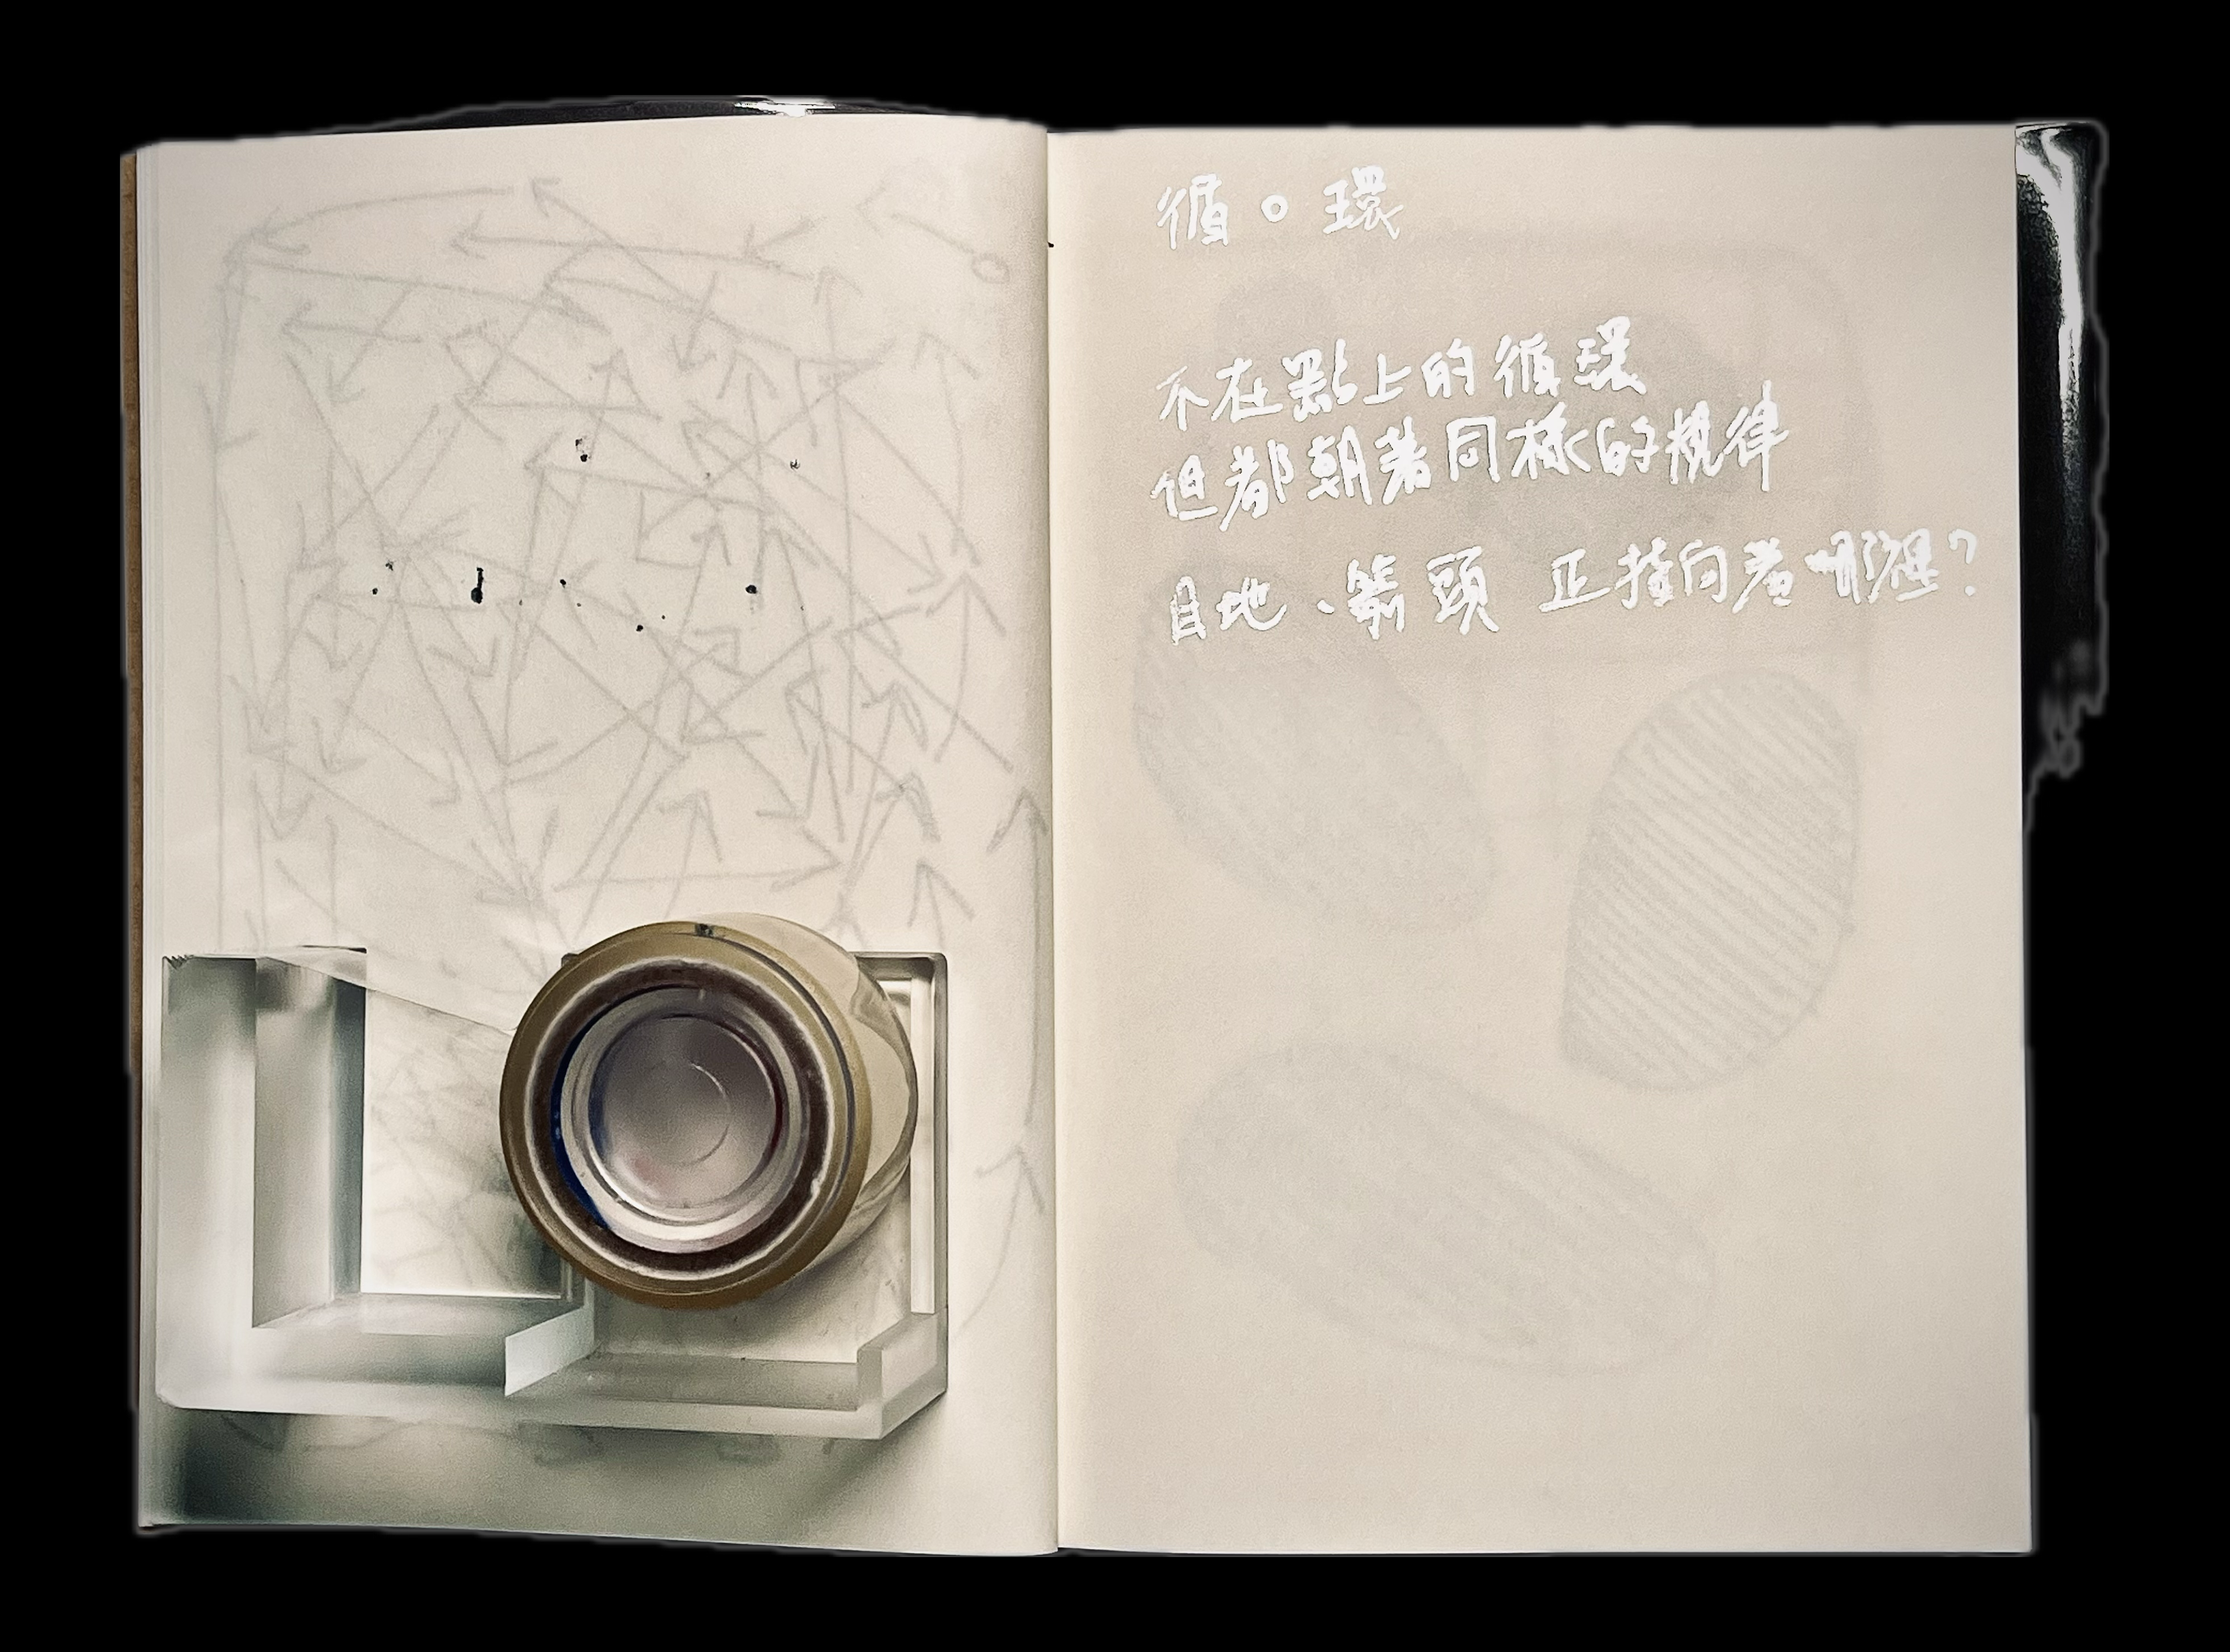 循。環
不在點上的循環
但都朝著同樣的規律
目地、箭頭 正指向着哪裡？